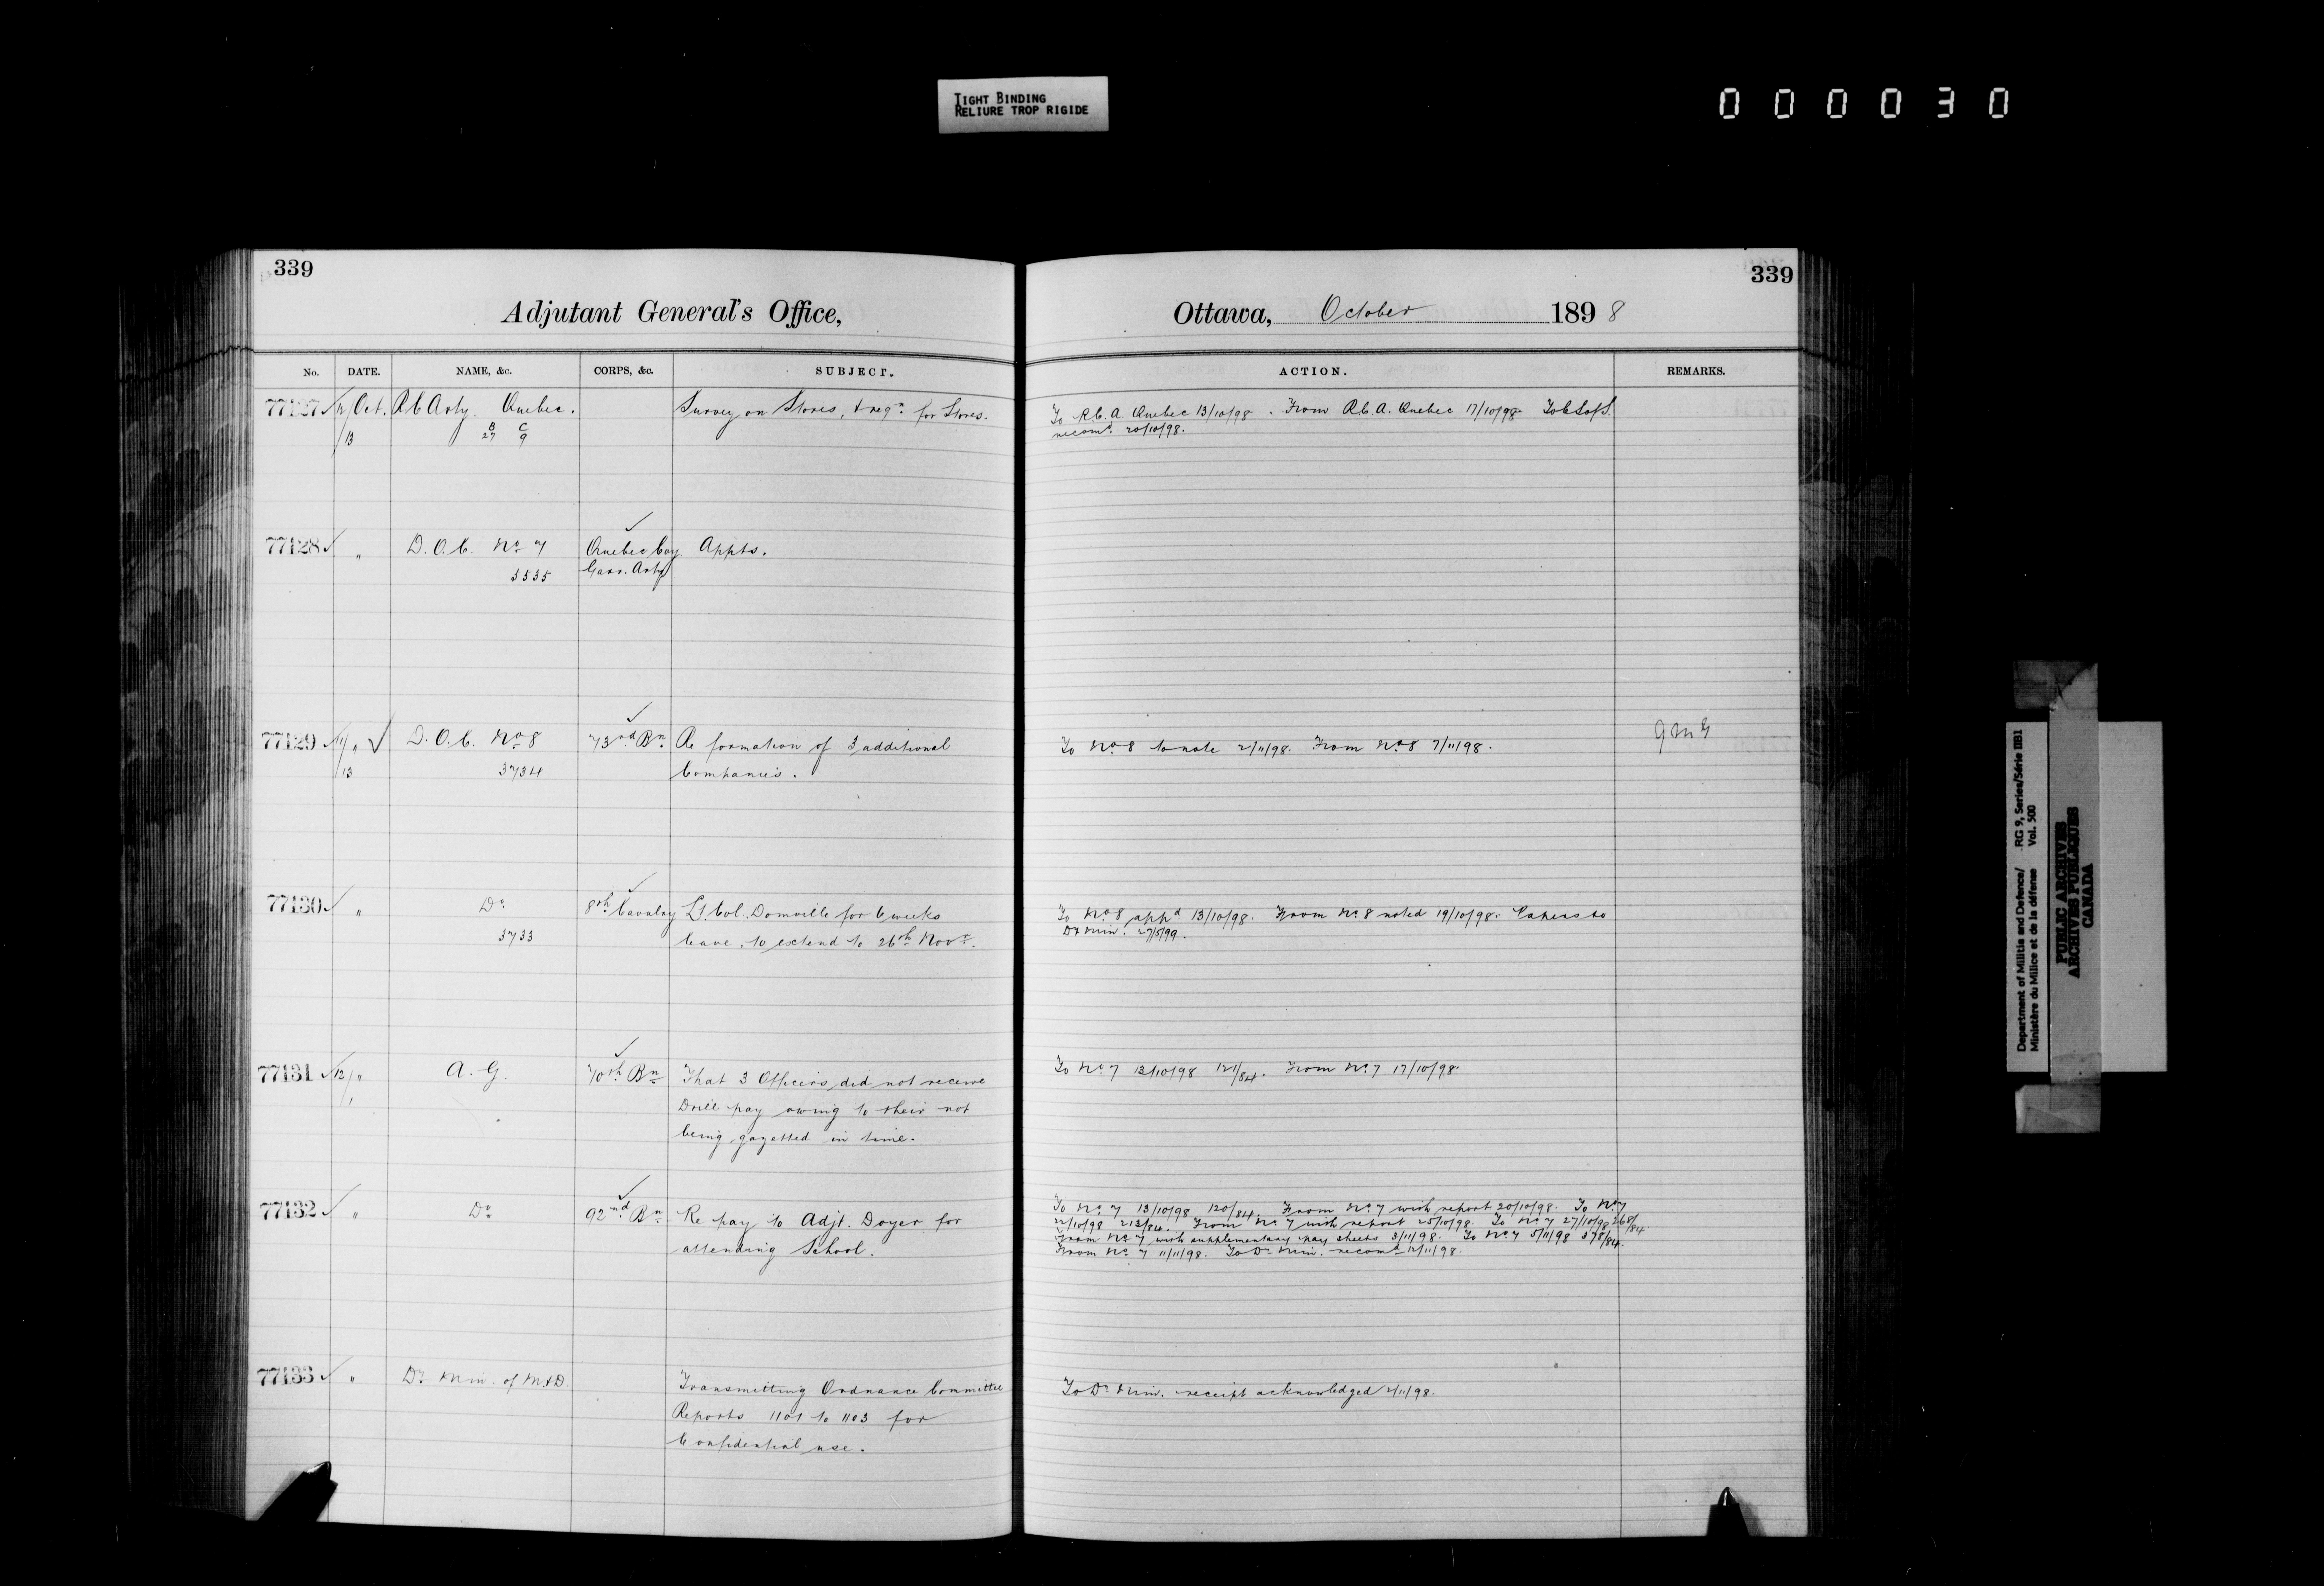 TIGHT BINDING
RELIURE TROP RIGIDE
000030
339
Adjutant General's Office,
No. DATE. NAME, &c. CORPS, &c. SUBJECT.
77127 12/13 Oct. R.C. Arty. Quebec. Survey on Stores, & reqn. for Stores.
B/27 C/9
77128 " D.O.C. No 7 Quebec Coy Appts.
3535 Garr. Arty
77129 11/13 " D.O.C. No 8 73rd Bn. Re formation of 3 additional
3734 Companies.
77130 " Do 8th Cavalry Lt Col. Domville for 6 weeks
3733 leave, to extend to 26th Novr.
77131 12/1 " A.G. 70th Bn That 3 Officers did not receive
Drill pay owing to their not
being gazetted in time.
77132 " Do 92nd Bn. Re pay to Adjt. Doyer for
attending School.
77133 " Dy Min. of M. & D. Transmitting Ordnance Committee
Reports 1101 to 1103 for
Confidential use.
339
Ottawa, October 1898
ACTION. REMARKS.
To R.C.A. Quebec 13/10/98. From R.C.A. Quebec 17/10/98. To C.S. of S.
recomd. 20/10/98.
To No 8 to note 2/11/98. From No 8 7/11/98.
To No 8 appd 13/10/98. From No 8 noted 19/10/98. Papers to
Dy Min. 27/5/99.
To No. 7 13/10/98 121/84. From No. 7 17/10/98.
To No. 7 13/10/98 120/84. From No. 7 with report 20/10/98. To No. 7
22/10/98 213/84. From No. 7 with report 25/10/98. To No. 7 27/10/98 268/84.
From No. 7 with supplementary pay sheets 3/11/98. To No. 7 5/11/98 378/84.
From No. 7 11/11/98. To Dy Min. recomd 12/11/98.
To Dy Min. receipt acknowledged 2/11/98.
Department of Militia and Defence/ RG 9, Series/Série IIB1
Ministère du Milice et de la défense Vol. 500
PUBLIC ARCHIVES
ARCHIVES PUBLIQUES
CANADA